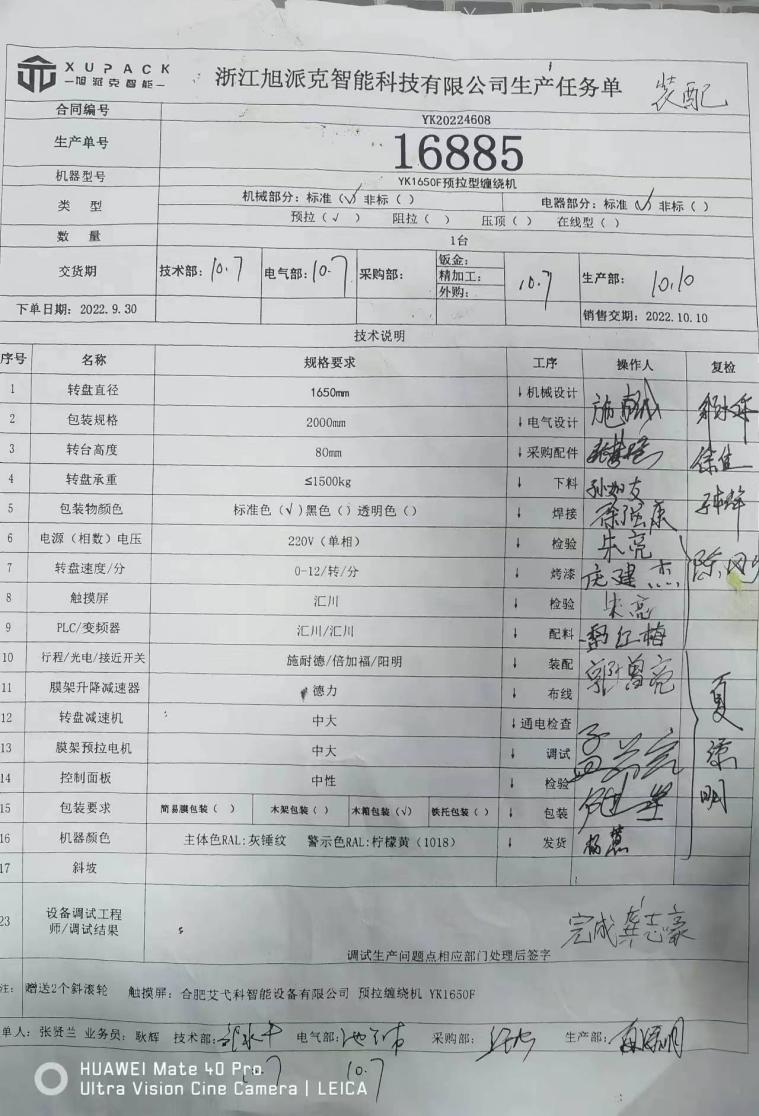 XUPACK
旭派克智能
浙江旭派克智能科技有限公司生产任务单 装配
合同编号 YK20224608
生产单号 16885
机器型号 YK1650F预拉型缠绕机
类 型 机械部分：标准（√）非标（ ） 电器部分：标准（√）非标（ ）
预拉（√） 阻拉（ ） 压顶（ ） 在线型（ ）
数 量 1台
交货期 技术部：10.7 电气部：10.7 采购部： 钣金： 精加工： 外购： 10.7 生产部：10.10
下单日期：2022.9.30 销售交期：2022.10.10
技术说明
序号 名称 规格要求 工序 操作人 复检
1 转盘直径 1650mm ↓机械设计
2 包装规格 2000mm ↓电气设计
3 转台高度 80mm ↓采购配件
4 转盘承重 ≤1500kg ↓ 下料
5 包装物颜色 标准色（√）黑色（）透明色（） ↓ 焊接
6 电源（相数）电压 220V（单相） ↓ 检验 朱亮
7 转盘速度/分 0-12/转/分 ↓ 烤漆 庞建杰
8 触摸屏 汇川 ↓ 检验 朱亮
9 PLC/变频器 汇川/汇川 ↓ 配料
10 行程/光电/接近开关 施耐德/倍加福/阳明 ↓ 装配 郭曾亮
11 膜架升降减速器 德力 ↓ 布线
12 转盘减速机 中大 ↓通电检查
13 膜架预拉电机 中大 ↓ 调试
14 控制面板 中性 ↓ 检验
15 包装要求 简易膜包装（ ） 木架包装（ ） 木箱包装（√） 铁托包装（ ） ↓ 包装
16 机器颜色 主体色RAL:灰锤纹 警示色RAL:柠檬黄（1018） ↓ 发货
17 斜坡
23 设备调试工程师/调试结果 完成龚志豪
调试生产问题点相应部门处理后签字
注： 赠送2个斜滚轮 触摸屏：合肥艾弋科智能设备有限公司 预拉缠绕机 YK1650F
单人：张贤兰 业务员：耿辉 技术部： 电气部： 采购部： 生产部：
10.7
HUAWEI Mate 40 Pro
Ultra Vision Cine Camera | LEICA